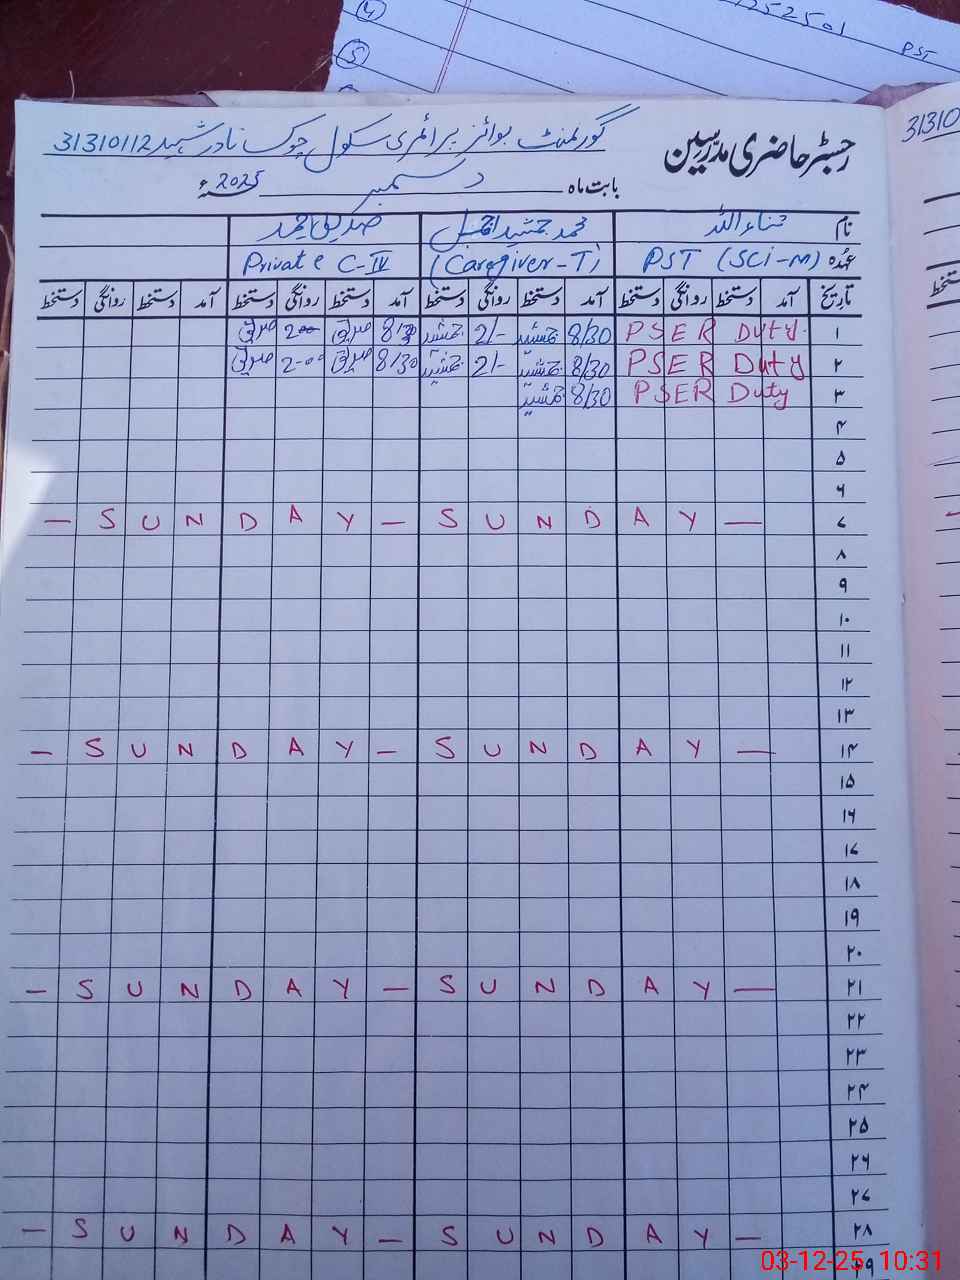 4
5
PST
رجسٹر حاضری مدرسین
گورنمنٹ بوائز پرائمری سکول چوک نادر شہید 31310112
31310
بابت ماہ دسمبر 2025ء
نام ثناء اللہ محمد جمشید صدیق احمد
عہدہ PST (SCi-M) (Caregiver-T) Private C-IV
تاریخ آمد دستخط روانگی دستخط آمد دستخط روانگی دستخط آمد دستخط روانگی دستخط آمد دستخط روانگی دستخط
۱ PSER Duty 8/30 جمشید 2/- جمشید 8/30 صدیق 2-00 صدیق
۲ PSER Duty 8/30 جمشید 2/- جمشید 8/30 صدیق 2-00 صدیق
۳ PSER Duty 8/30 جمشید
۴
۵
۶
۷ — S U N D A Y — S U N D A Y —
۸
۹
۱۰
۱۱
۱۲
۱۳
۱۴ — S U N D A Y — S U N D A Y —
۱۵
۱۶
۱۷
۱۸
۱۹
۲۰
۲۱ — S U N D A Y — S U N D A Y —
۲۲
۲۳
۲۴
۲۵
۲۶
۲۷
۲۸ — S U N D A Y — S U N D A Y —
۲۹
03-12-25 10:31